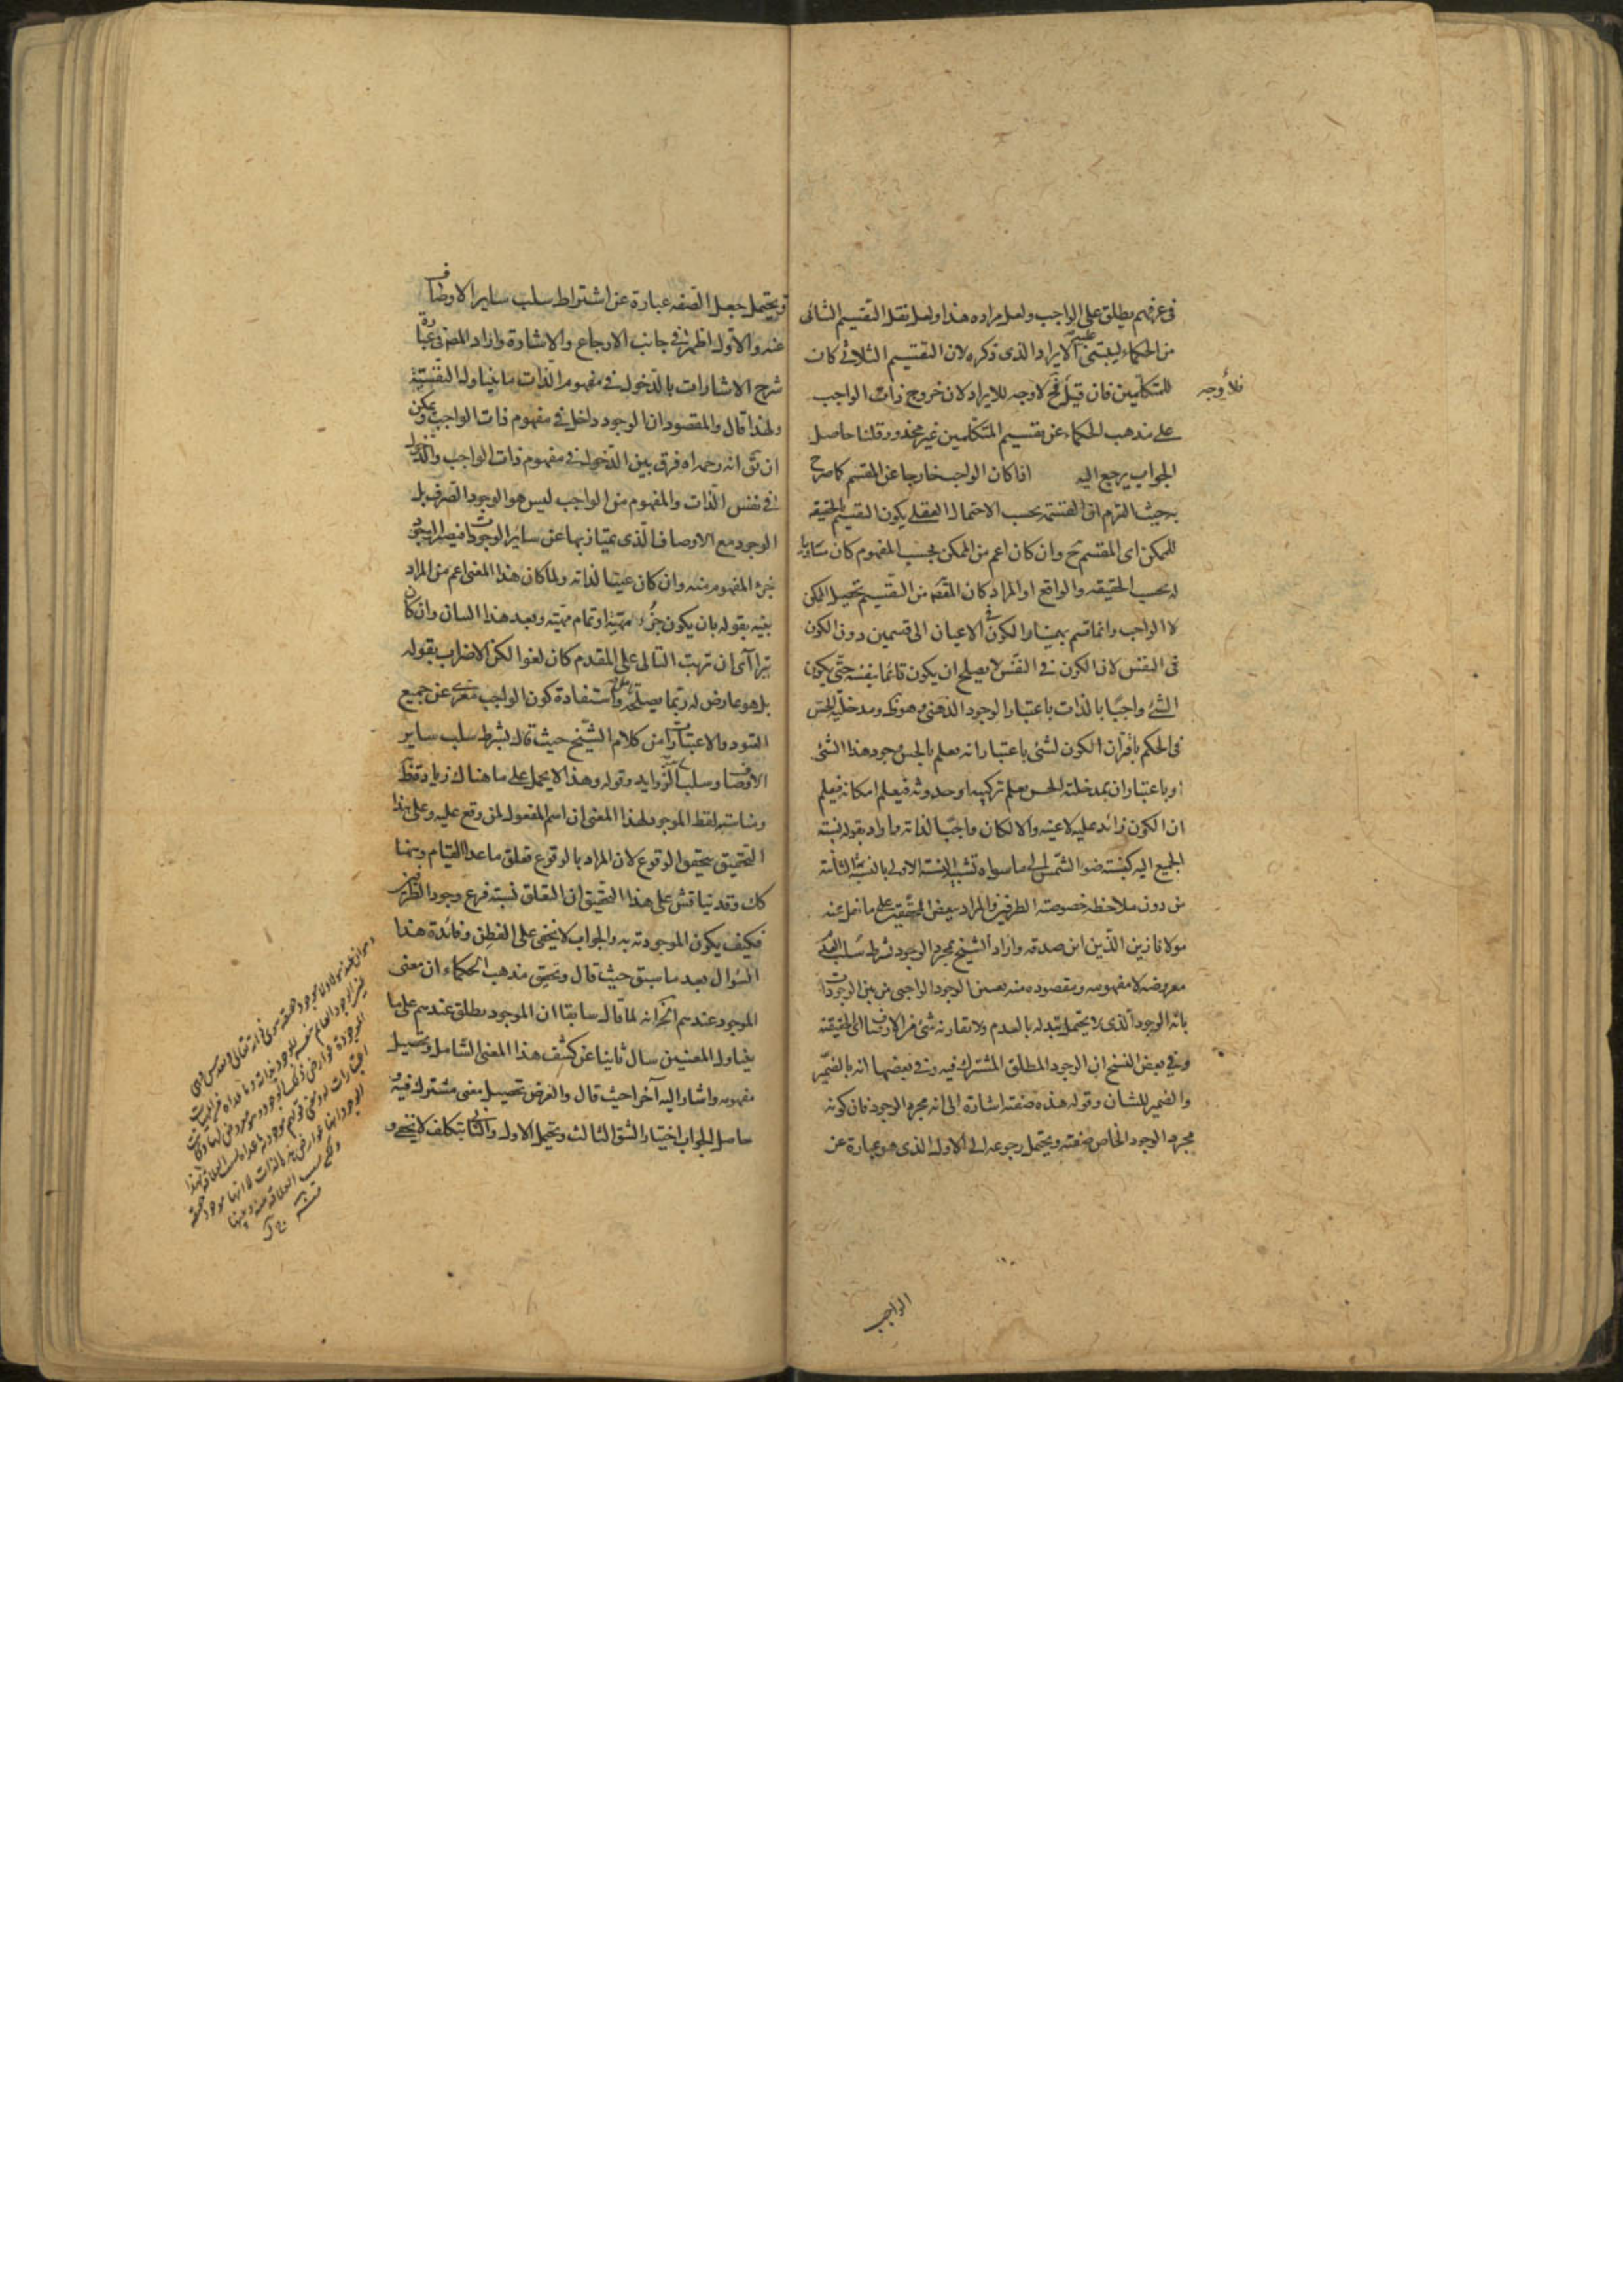 فى عرفهم يطلق على الواجب ولعل مراده هذا ولعل نقل التقسيم الثانى
من الحكماء ليبتنى عليه الايراد الذى ذكره لان التقسيم الثلاثى كان
للمتكلمين فان قيل فح لا وجه للايراد لان خروج ذات الواجب
فلا وجه
على مذهب الحكماء عن تقسيم المتكلمين غير محذور وقلنا حاصل
الجواب يرجع اليه اذا كان الواجب خارجا عن المقسم كما صرح
بحيث التزم ان القسمة بحسب الاحتمال العقلى يكون التقسيم بالحقيقه
للممكن اى المقسم ح وان كان اعم من الممكن بحسب المفهوم كان مساويا
له بحسب الحقيقه والواقع او المراد كان المقصد من التقسيم تحصيل الممكن
لا الواجب وانما قسم بهمنيار الكون فى الاعيان الى قسمين دون الكون
فى النفس لان الكون فى النفس لا يصلح ان يكون قائما بنفسه حتى يكون
الشئ واجبا بالذات باعتبار الوجود الذهنى وهو ظ ومدخلية الحس
فى الحكم باقران الكون لشئ باعتبار انه يعلم بالحس وجود هذا الشئ
او باعتبار ان بمدخلته الحس يعلم تركيبه او حدوثه فيعلم امكانه فيعلم
ان الكون زائد عليه لا عينه والا لكان واجبا لذاته واراد بقوله نسبة
الجميع اليه كنسبة ضوء الشمس الى ما سواه تشبيه النسبة الاولى بالنسبة الثانية
من دون ملاحظه خصوصة الطرفين والمراد ببعض المحققين على ما نقل عنه
مولانا زين الدين ابن صدقه واراد الشيخ بمجرد الوجود بشرط سلب العدم
معروضه لا مفهومه ومقصوده منه تعيين الوجود الواجبى من بين الوجودات
بانه الوجود الذى لا يحتمل تبدله بالعدم ولا تقارنه شئ من الاوصاف الى الحقيقة
وفى بعض النسخ ان الوجود المطلق المشترك فيه وفى بعضها انه بالضمير
والضمير للشان وقوله هذه صفته اشارة الى انه مجرد الوجود فان كونه
مجرد الوجود الخاص صفته ويحتمل رجوعه الى الاول الذى هو عبارة عن
الواجب
ويحتمل جعل الصفه عبارة عن اشتراط سلب ساير الاوصاف
عنه والاول اظهر فى جانب الارجاع والاشارة واراد المصنف فى عبارة
شرح الاشارات بالدخول فى مفهوم الذات ما يتناول النفسية
ولهذا قال والمقصود ان الوجود داخل فى مفهوم ذات الواجب ويمكن
ان يق انه رحمه اه فرق بين الدخول فى مفهوم ذات الواجب والدخول
فى نفس الذات والمفهوم من الواجب ليس هو الوجود الصرف بل
الوجود مع الاوصاف الذى يمتاز بها عن ساير الوجودات فيصير الوجود
جزء المفهوم منه وان كان عينا لذاته ولما كان هذا المعنى اعم من المراد
بينه بقوله بان يكون جزء مهيته او تمام مهيته وبعد هذا البيان وان كان
يترا آى ان ترتب التالى على المقدم كان لغوا لكن الاضراب بقوله
بل هو عارض له ربما يصلحه واستفادة كون الواجب معرى عن جميع
القيود والاعتبارات من كلام الشيخ حيث قال بشرط سلب ساير
الاوصاف وسلب الزوايد وقوله وهذا لا يحمل على ما هناك زيادة فقط
ومناسبة لفظ الموجود لهذا المعنى ان اسم المفعول لمن وقع عليه وعلى هذا
التحقيق يتحقق الوقوع لان المراد بالوقوع تعلق ما عدا القيام وههنا
كك وقد يناقش على هذا التحقيق ان التعلق نسبة فرع وجود الطرفين
فكيف يكون الموجودته به والجواب لا يخفى على الفطن وفائدة هذا
السؤال بعد ما سبق حيث قال وتحقيق مذهب الحكماء ان معنى
الموجود عندهم الخ انه لما قال سابقا ان الموجود يطلق عندهم على ما
يتناول المعنيين سال ثانيا عن كشف هذا المعنى الشامل وتحصيل
مفهومه واشار اليه آخرا حيث قال والغرض تحصيل معنى مشترك فيه
حاصل الجواب اختيار الشق الثالث ويحتمل الاول والثانى بتكلف لا يخفى و